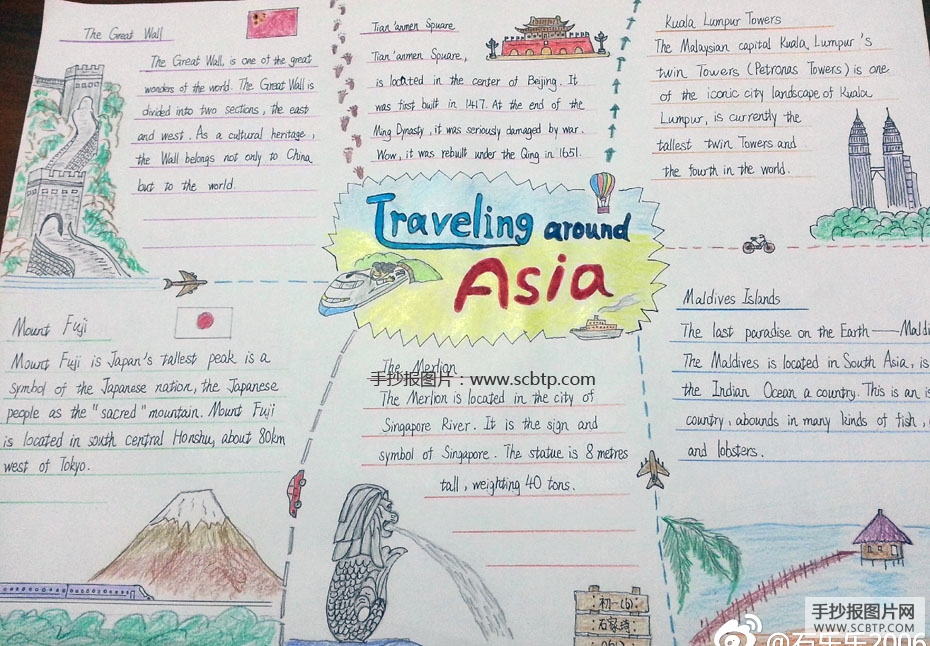 The Great Wall
The Great Wall, is one of the great
wonders of the world. The Great Wall is
divided into two sections, the east
and west. As a cultural heritage,
the Wall belongs not only to China
but to the world.
Tian'anmen Square
Tian'anmen Square,
is located in the center of Beijing. It
was first built in 1417. At the end of the
Ming Dynasty, it was seriously damaged by war.
Wow, it was rebuilt under the Qing in 1651.
Kuala Lumpur Towers
The Malaysian capital Kuala Lumpur's
twin Towers (Petronas Towers) is one
of the iconic city landscape of Kuala
Lumpur, is currently the
tallest twin Towers and
the fourth in the world.
Traveling around
Asia
Mount Fuji
Mount Fuji is Japan's tallest peak is a
symbol of the Japanese nation, the Japanese
people as the "sacred" mountain. Mount Fuji
is located in south central Honshu, about 80km
west of Tokyo.
The Merlion
手抄报图片：www.scbtp.com
The Merlion is located in the city of
Singapore River. It is the sign and
symbol of Singapore. The statue is 8 metres
tall, weighting 40 tons.
Maldives Islands
The last paradise on the Earth——Maldi
The Maldives is located in South Asia, is
the Indian Ocean a country. This is an is
country, abounds in many kinds of fish,
and lobsters.
初一(6)
手抄报图片网
WWW.SCBTP.COM